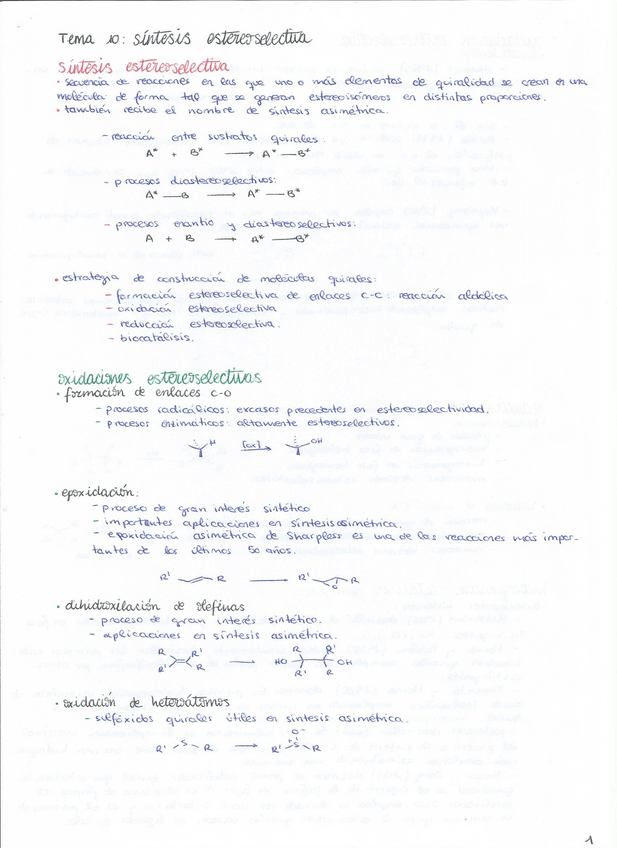 Tema 10: síntesis estereoselectiva
síntesis estereoselectiva
• secuencia de reacciones en las que uno o más elementos de quiralidad se crean en una
molécula de forma tal que se generan estereoisómeros en distintas proporciones.
• también recibe el nombre de síntesis asimétrica.
- reacción entre sustratos quirales:
A* + B* ⟶ A*—B*
- procesos diastereoselectivos:
A*—B ⟶ A*—B*
- procesos enantio y diastereoselectivos:
A + B ⟶ A*—B*
• estrategia de construcción de moléculas quirales:
- formación estereoselectiva de enlaces c-c: reacción aldólica
- oxidación estereoselectiva
- reducción estereoselectiva.
- biocatálisis.
oxidaciones estereoselectivas
• formación de enlaces c-o
- procesos radicálicos: escasos precedentes en estereoselectividad.
- procesos enzimáticos: altamente estereoselectivos.
H [ox] OH
• epoxidación:
- proceso de gran interés sintético
- importantes aplicaciones en síntesis asimétrica.
- epoxidación asimétrica de Sharpless es una de las reacciones más impor-
tantes de los últimos 50 años.
R' R ⟶ R' O R
• dihidroxilación de olefinas
- proceso de gran interés sintético.
- aplicaciones en síntesis asimétrica.
R R' R R'
R' R ⟶ HO OH
R' R
• oxidación de heteroátomos
- sulfóxidos quirales útiles en síntesis asimétrica.
O-
R' S R ⟶ R' +S R
1